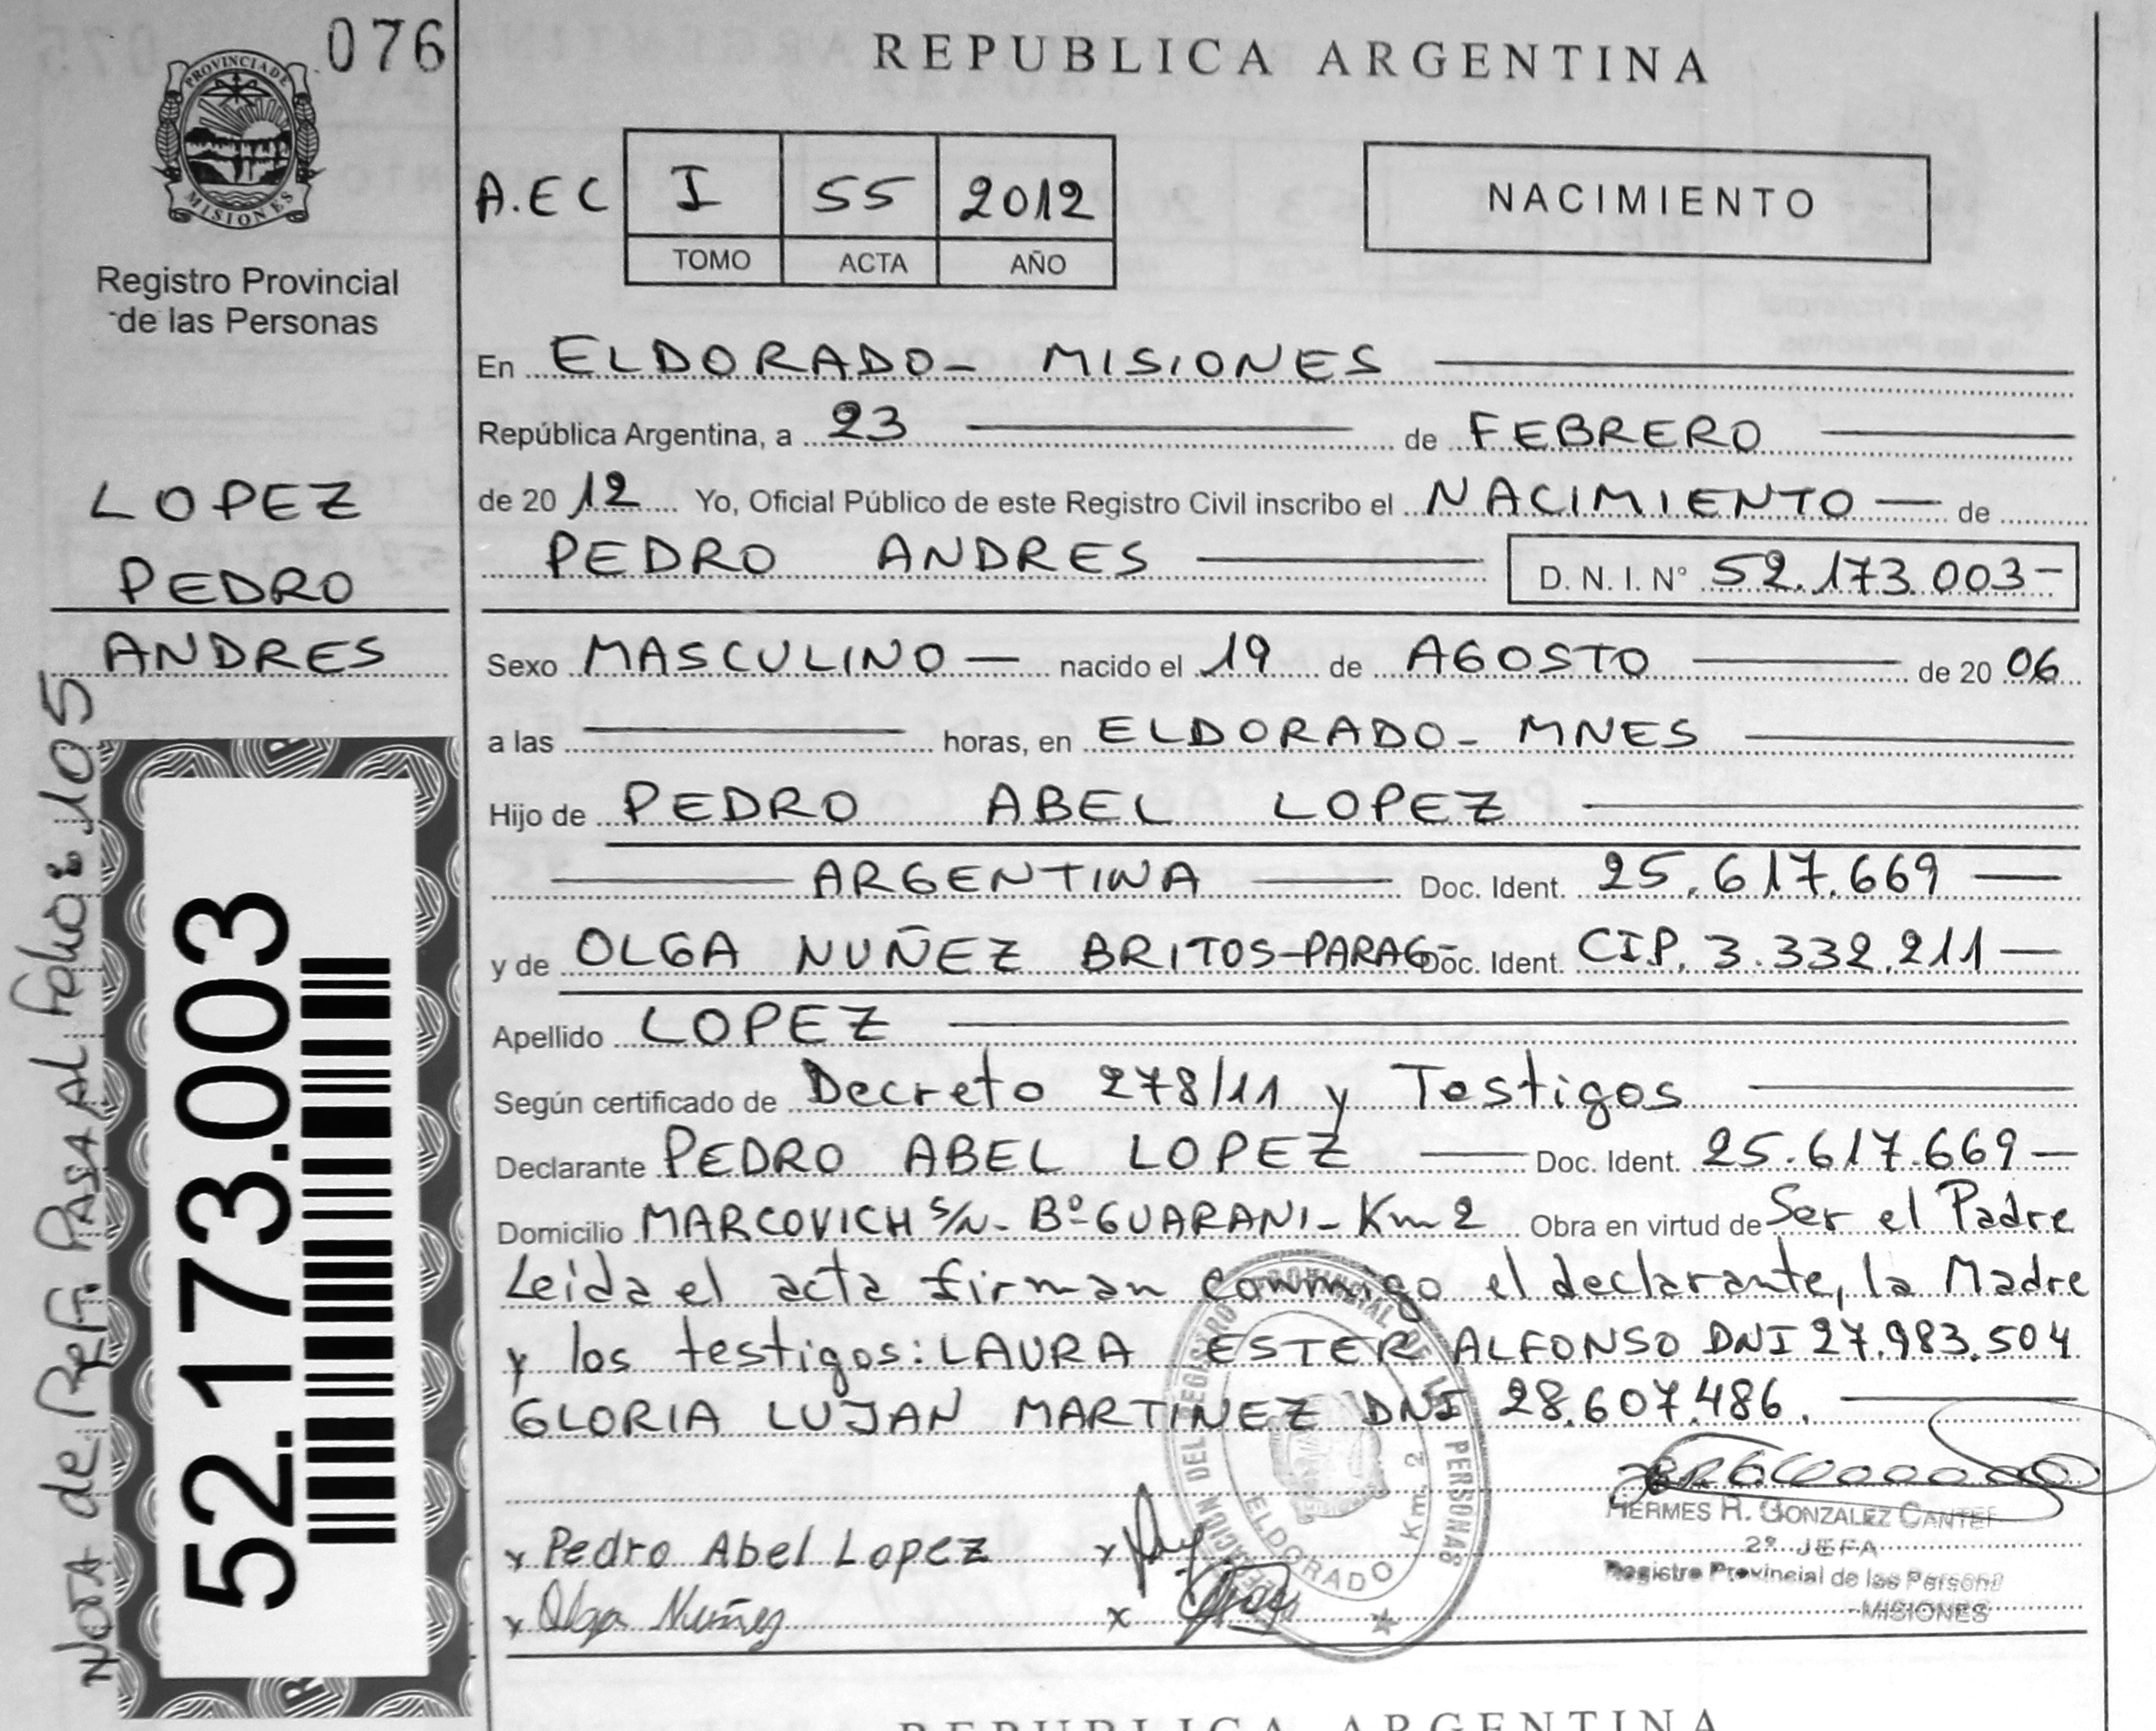 076
PROVINCIA DE
MISIONES
Registro Provincial
de las Personas
LOPEZ
PEDRO
ANDRES
NOTA de Reft. PASA AL folio 105
52.173.003
REPUBLICA ARGENTINA
A.E.C I 55 2012
TOMO ACTA AÑO
NACIMIENTO
En ELDORADO - MISIONES
República Argentina, a 23 de FEBRERO
de 20 12 Yo, Oficial Público de este Registro Civil inscribo el NACIMIENTO de
PEDRO ANDRES D. N. I. N° 52.173.003-
Sexo MASCULINO nacido el 19 de AGOSTO de 20 06
a las horas, en ELDORADO - MNES
Hijo de PEDRO ABEL LOPEZ
ARGENTINA Doc. Ident. 25.617.669
y de OLGA NUÑEZ BRITOS-PARAG- Doc. Ident. CIP. 3.332.211
Apellido LOPEZ
Según certificado de Decreto 278/11 y Testigos
Declarante PEDRO ABEL LOPEZ Doc. Ident. 25.617.669
Domicilio MARCOVICH S/N - Bº GUARANI - Km 2 Obra en virtud de Ser el Padre
Leida el acta firman conmigo el declarante, la Madre
y los testigos: LAURA ESTER ALFONSO DNI 27.983.504
GLORIA LUJAN MARTINEZ DNI 28.607.486.
DEL REGISTRO PROVINCIAL DE LAS PERSONAS
ELDORADO Km. 2
x Pedro Abel Lopez x
x Olga Nuñez x
HERMES R. GONZALEZ
2º JEFA
Registro Provincial de las Persona
MISIONES
REPUBLICA ARGENTINA